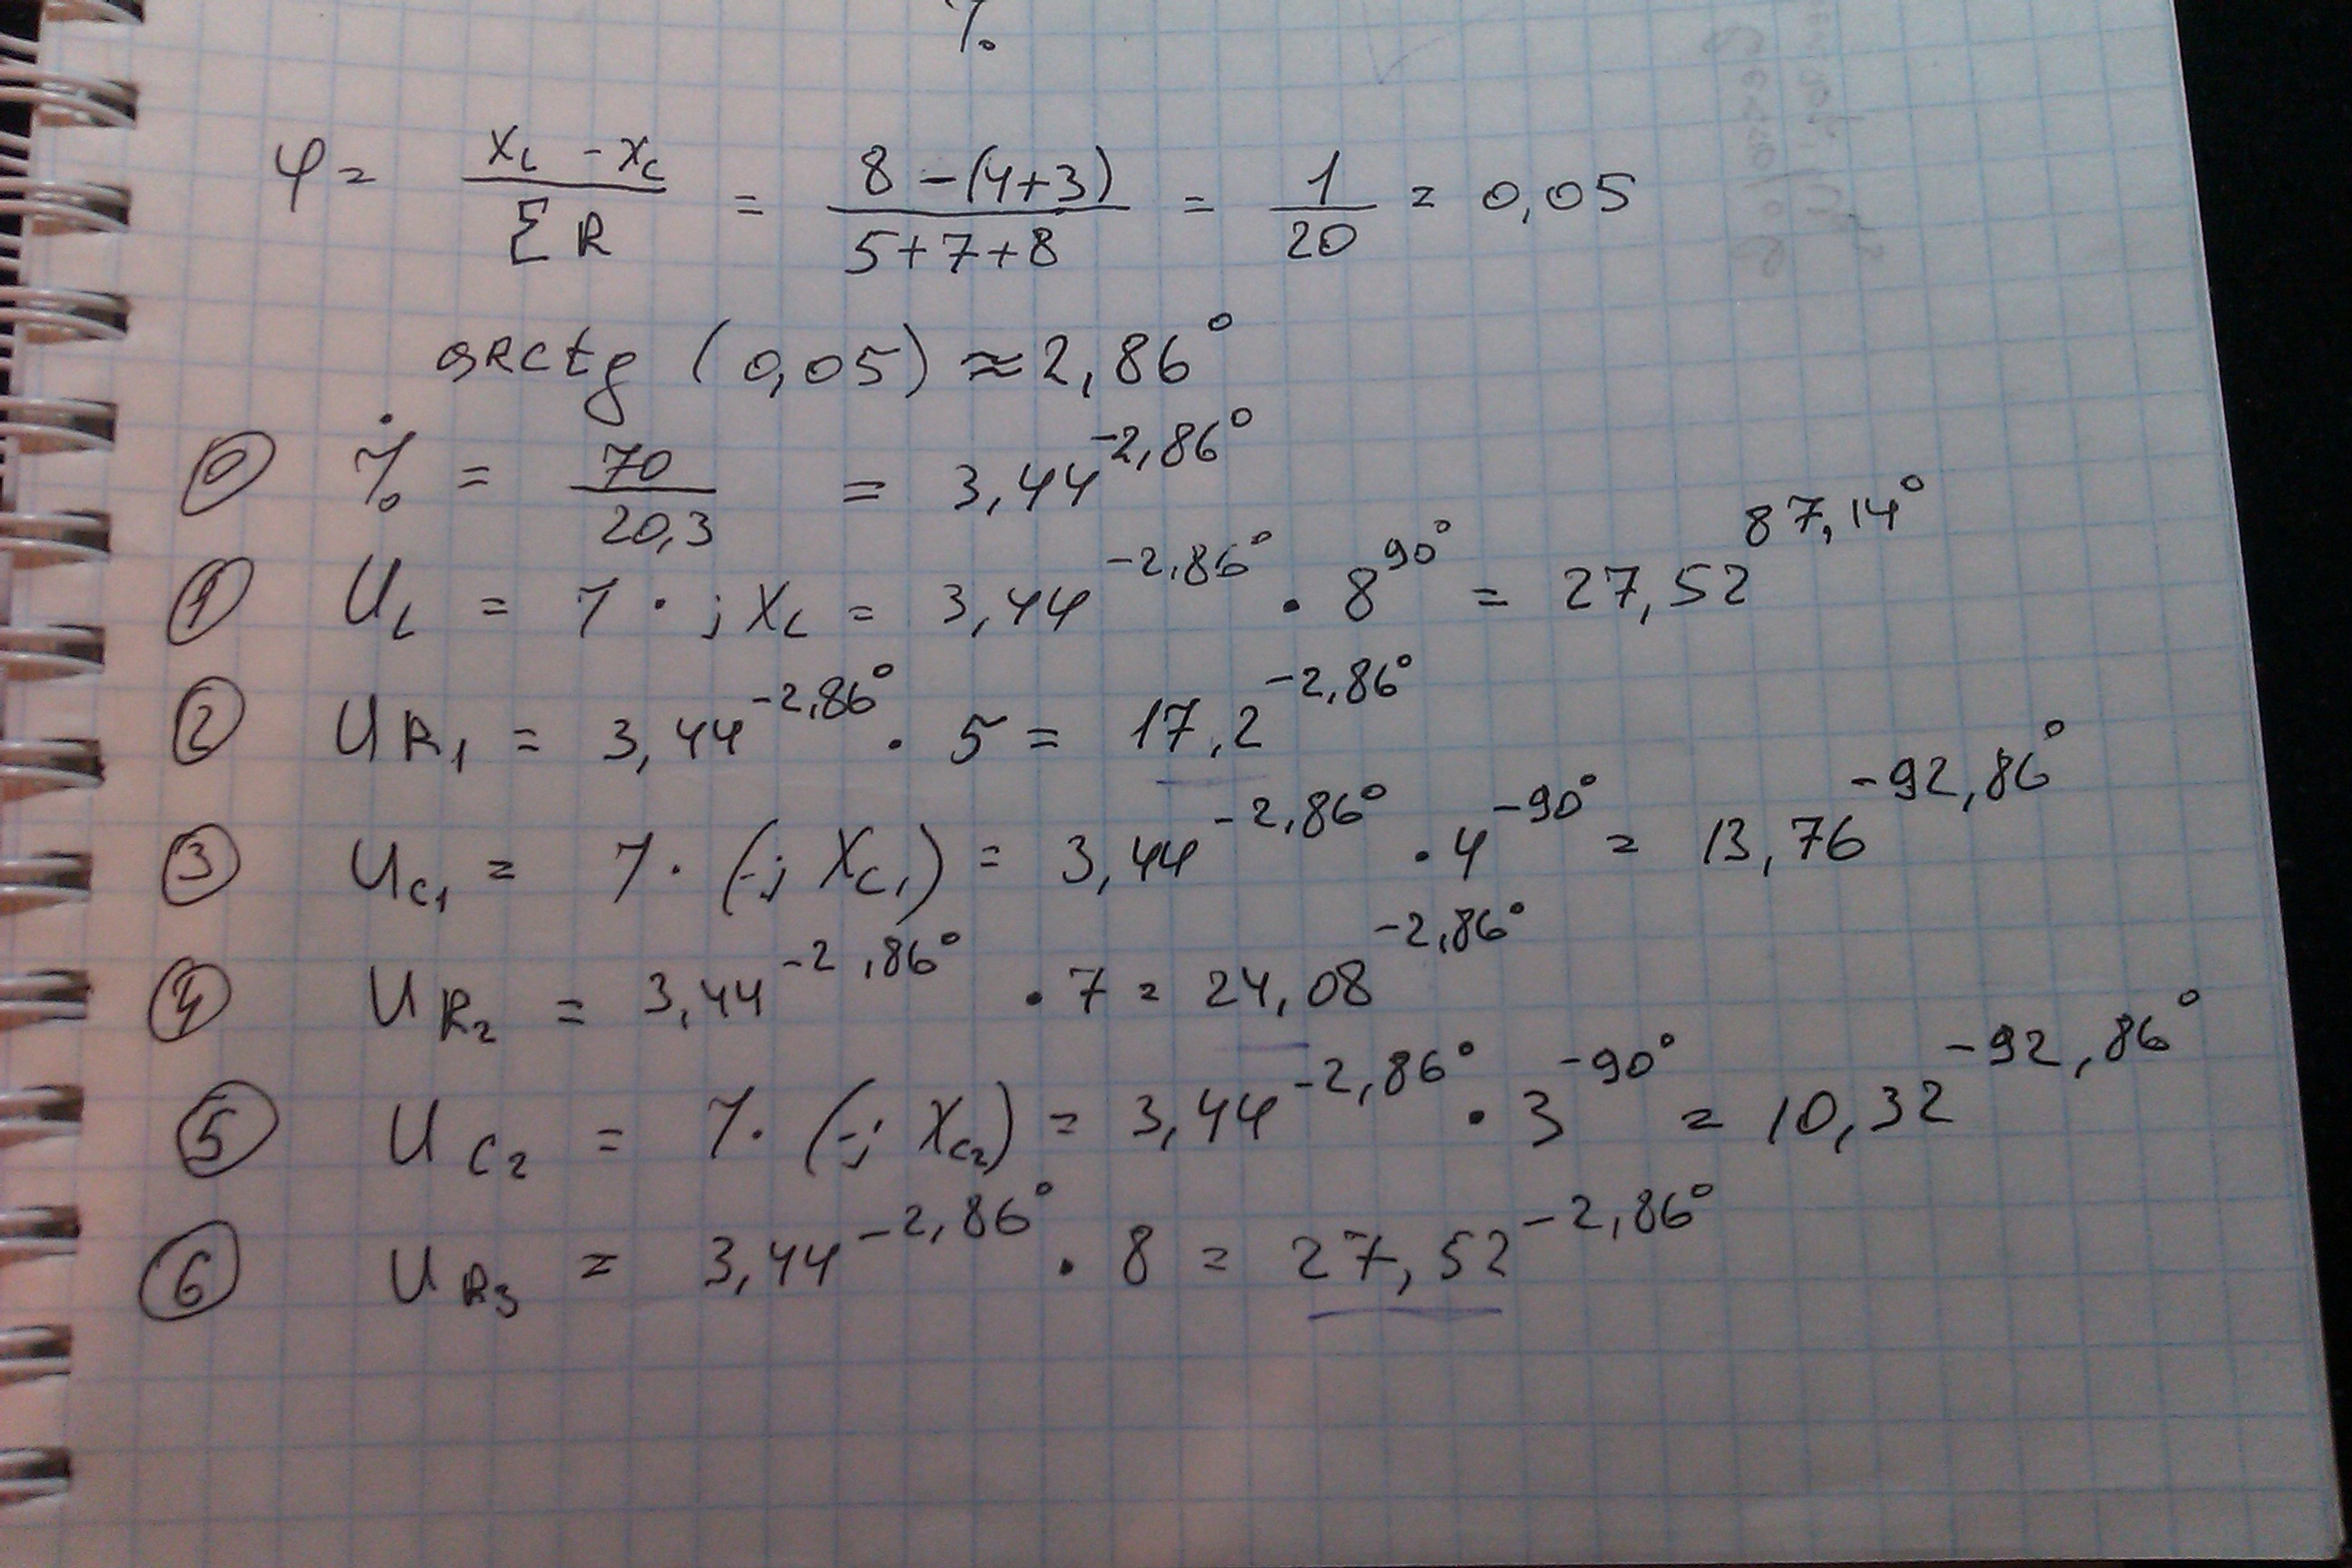 І₀
φ = (X_L - X_C) / ΣR = (8 - (4+3)) / (5+7+8) = 1/20 = 0,05
arctg (0,05) ≈ 2,86°
⓪ İ₀ = 70/20,3 = 3,44^-2,86°
① U_L = I · jX_L = 3,44^-2,86° · 8^90° = 27,52^87,14°
② U_R₁ = 3,44^-2,86° · 5 = 17,2^-2,86°
③ U_C₁ = I · (-j X_C₁) = 3,44^-2,86° · 4^-90° = 13,76^-92,86°
④ U_R₂ = 3,44^-2,86° · 7 = 24,08^-2,86°
⑤ U_C₂ = I · (-j X_C₂) = 3,44^-2,86° · 3^-90° = 10,32^-92,86°
⑥ U_R₃ = 3,44^-2,86° · 8 = 27,52^-2,86°